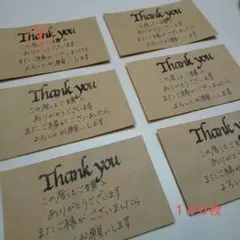 Thank you
この度はご購入
ありがとうございます
またご縁がございましたら
よろしくお願いします
Thank you
この度はご購入
ありがとうございます
またご縁がございましたら
よろしくお願いします
Thank you
この度はご購入
ありがとうございます
またご縁がございましたら
よろしくお願いします
Thank you
この度はご購入
ありがとうございます
またご縁がございましたら
よろしくお願いします
Thank you
この度はご購入
ありがとうございます
またご縁がございましたら
よろしくお願いします
Thank you
この度は
ありがとうござい
またご縁が
よろしくお